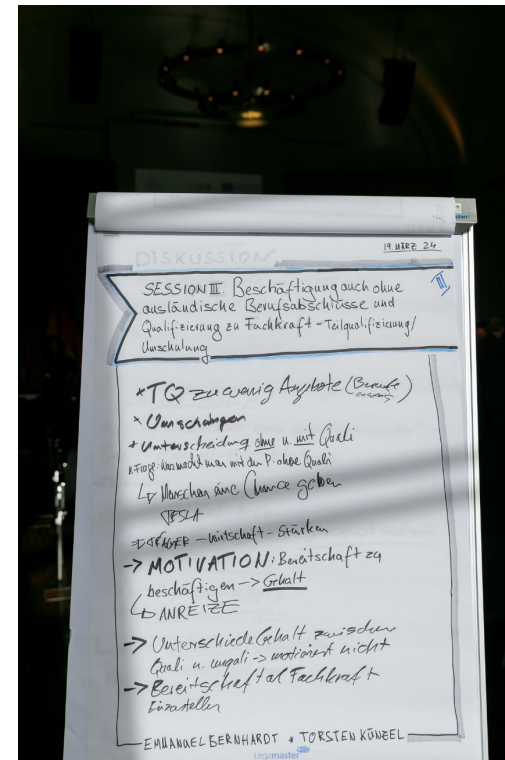 19. MÄRZ 24
DISKUSSION
SESSION III: Beschäftigung auch ohne
ausländische Berufsabschlüsse und
Qualifizierung zu Fachkraft - Teilqualifizierung/
Umschulung
III
* TQ zu wenig Angebote (Berufe
)
* Umschulungen
* Unterscheidung ohne u. mit Quali
* Frage: Was macht man mit den P. ohne Quali
↳ Menschen eine Chance geben
TESLA
- Wirtschaft - Stärken
-> MOTIVATION: Bereitschaft zu
beschäftigen -> Gehalt
↳ ANREIZE
-> Unterschiede Gehalt zwischen
Quali u. unquali -> motiviert nicht
-> Bereitschaft al Fachkraft
Einzustellen
EMMANUEL BERNHARDT * TORSTEN KÜNZEL
Legamaster